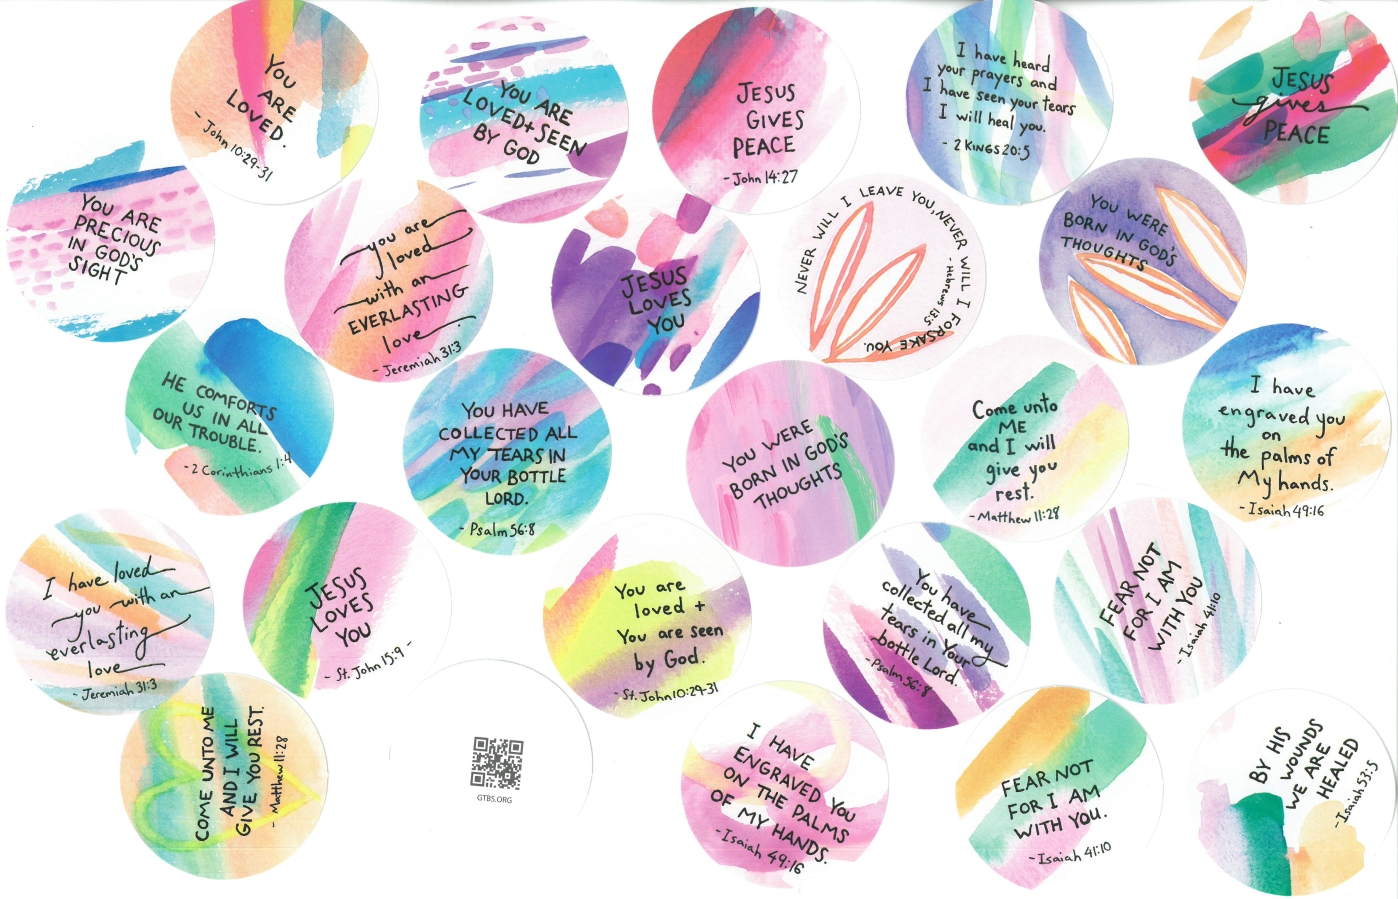 YOU
ARE
LOVED.
- John 10:29-31
YOU ARE
LOVED + SEEN
BY GOD
JESUS
GIVES
PEACE
- John 14:27
I have heard
your prayers and
I have seen your tears
I will heal you.
- 2 KINGS 20:5
JESUS
gives
PEACE
YOU ARE
PRECIOUS
IN GOD'S
SIGHT
you are
loved
with an
EVERLASTING
love
- Jeremiah 31:3
JESUS
LOVES
YOU
NEVER WILL I LEAVE YOU, NEVER WILL I FORSAKE YOU.
- Hebrews 13:5
YOU WERE
BORN IN GOD'S
THOUGHTS
HE COMFORTS
US IN ALL
OUR TROUBLE.
- 2 Corinthians 1:4
YOU HAVE
COLLECTED ALL
MY TEARS IN
YOUR BOTTLE
LORD.
- Psalm 56:8
YOU WERE
BORN IN GOD'S
THOUGHTS
Come unto
ME
and I will
give you
rest.
- Matthew 11:28
I have
engraved you
on
the palms of
My hands.
- Isaiah 49:16
I have loved
you with an
everlasting
love
- Jeremiah 31:3
JESUS
LOVES
YOU
- St. John 15:9 -
You are
loved +
You are seen
by God.
- St. John 10:29-31
You have
collected all my
tears in Your
bottle Lord.
- Psalm 56:8
FEAR NOT
FOR I AM
WITH YOU
- Isaiah 41:10
COME UNTO ME
AND I WILL
GIVE YOU REST.
- Matthew 11:28
GTBS.ORG
I HAVE
ENGRAVED YOU
ON THE PALMS
OF MY HANDS.
- Isaiah 49:16
FEAR NOT
FOR I AM
WITH YOU.
- Isaiah 41:10
BY HIS
WOUNDS
WE ARE
HEALED
- Isaiah 53:5